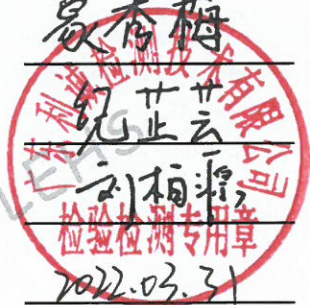 秀梅
芷芸
刘相
2022.03.31
广东利诚检测技术有限公司
检验检测专用章